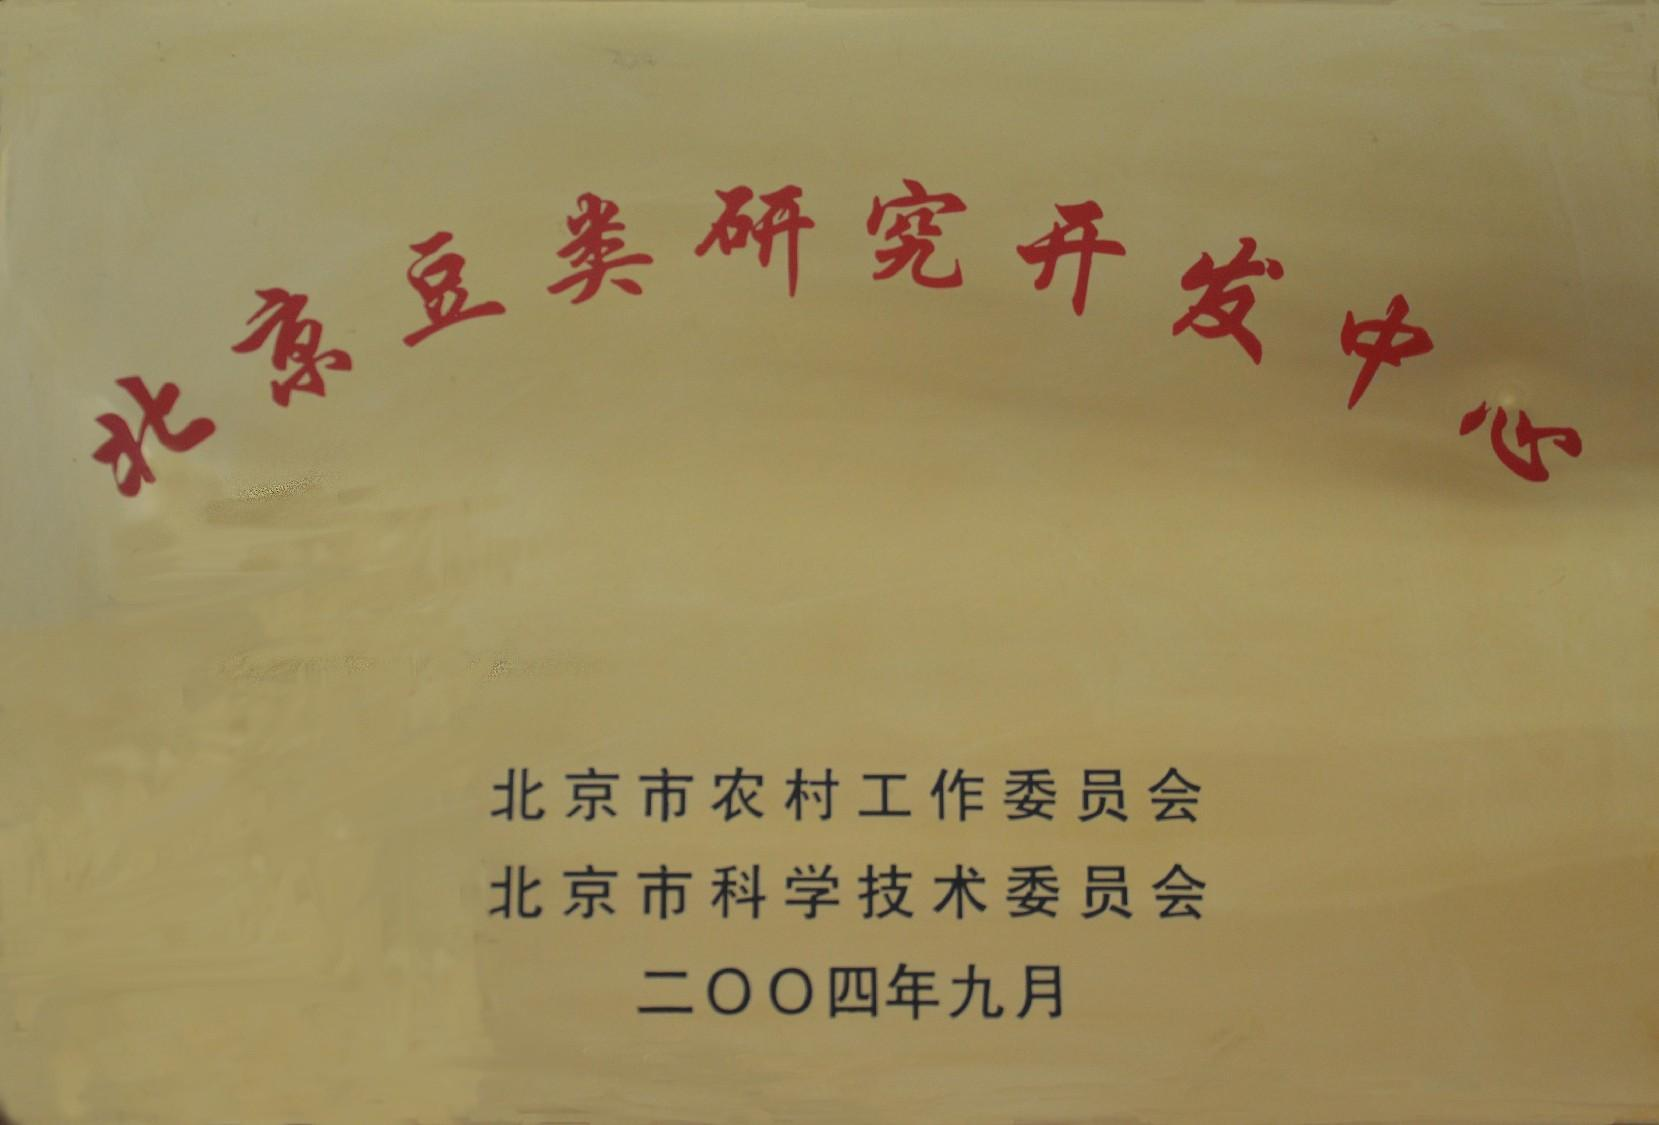 北京豆类研究开发中心
北京市农村工作委员会
北京市科学技术委员会
二〇〇四年九月